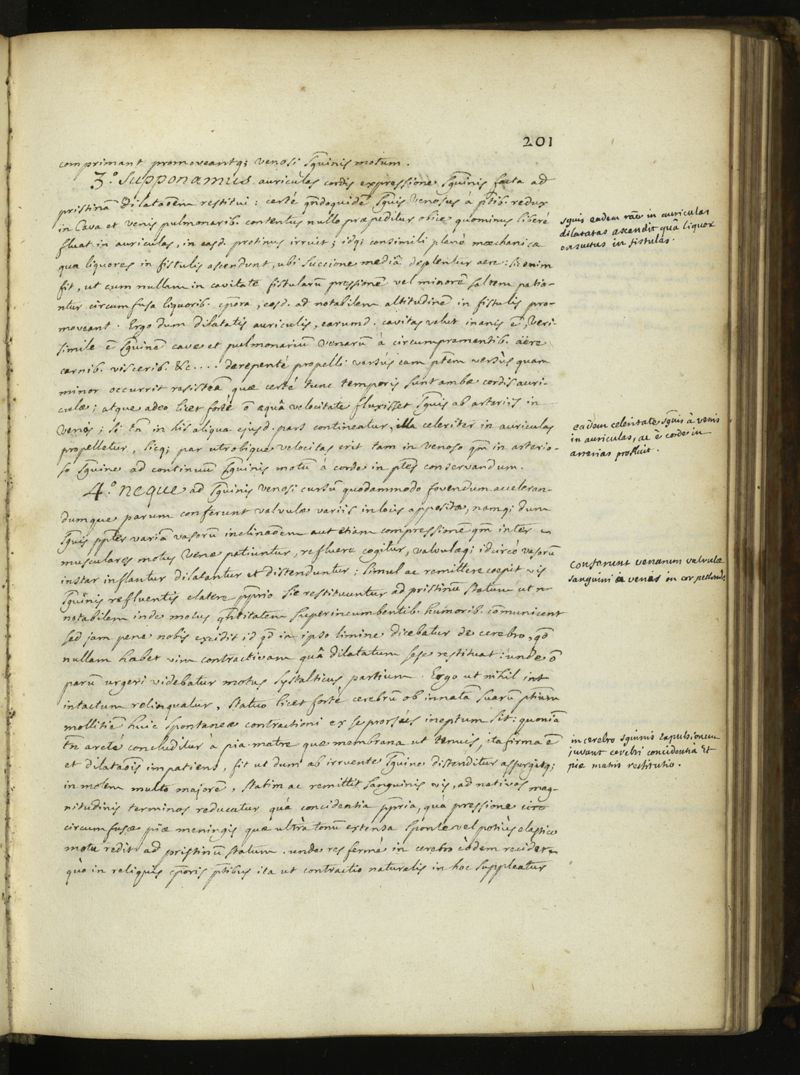 201
comprimant promoveantq; venosi sguinis motum.
3.º Supponamus auriculas cordis expressione sguinis facta ad
pristinā dilataōem restitui: certè qndoquidē sguis venosus a ptib. redux
in Cava et venis pulmonarib. contentus nullo præpeditus obice quominus liberè
fluat in auriculas, in easd. protinus irruit; idq; consimili planè mœchanica
qua liquores in fistulis ascendunt, ubi suctione mediâ deplentur aere: sic enim
fit, ut cum nullam in cavitate fistularū pressionē vel minorē saltem patia-
ntur circumfusa liquorib. cpora, easd. ad notabilem altitudinē in fistulis pro-
moveant. Ergo dum dilatatis auriculis, earumd. cavitas velut inanis ē, veri-
simile ē sguinē cavæ et pulmonariū venarū à circumpramentib. aëre
carnib. viscerib. &c.... derepentè propelli versùs eam ptēm versùs quam
minor occurrit resistēa quæ certè tunc temporis sunt ambæ cordis auri-
culæ; atque adeo licet fortè ō æquâ velocitate fluxisset sguis ab arteriis in
venas; si tn̄ in his aliqua ejusd. pars contineatur, illa celeriter in auriculas
propelletur, sicq; par utrobique velocitas erit tam in venoso qm̄ in arterio-
so sguine ad continuū sguinis motū à corde in ptes conservandum.
4.º neque ad sguinis venosi cursū quodammodo fovendum acceleran-
dumque parum conferunt valvulæ variis in locis appositæ, namq; dum
sguis ppter variā vasorū inclinaōem aut etiam compressionē qm̄ inter
musculares motus venæ patiuntur, refluere cogitur, valvulæq; idcircò vasorū
instar inflantur dilatantur et distenduntur: simul ac remittere coepit vis
sguinis refluentis elatere pprio sic restituuntur ad pristinū statum ut n
notabilem inde motus qntitatem superincumbentib. humorib. cōmunicent
sed jam pene nobis excidit id qd in ipso limine dicebatur de cerebro, qd
nullam habet vim contractivam quâ dilatatum sese restituat: unde ō
parū urgeri videbatur motus systalticus partium. Ergo ut nihil int
intactum relinquatur, statuo licet fortè cerebrū ob innatā suarū ptium
mollitiē huic spontaneæ contractioni ex se prorsùs ineptum sit: quoniā
tn̄ arctè concluditur à pia matre quæ membrana ut tenuis, ita firma ē
et dilataōis impatiens, fit ut dum ab irruente sguine distenditur assurgitq;
in molem multo majorē, statim ac remittit sanguinis vis, ad nativos mag-
nitudinis terminos reducatur quâ concidentia ppria, quâ pressione
circumfusæ piæ meningis quæ ultra tonū extensa sponte vel potius elastico
motu redit ad pristinū statum. unde res ferme in cerebro eòdem recidet
quò in reliquis cporis ptibus ita ut contractio naturalis in hoc suppleatur
sguis eadem rāoe in auriculas
dilatatas ascendit quâ liquor
in fistulas.
eadem celeritate sguis à venis
in auriculas, ac è corde in
arterias profluit.
Conferunt venarum valvulæ
sanguini e venas in cor
in cerebro sguinis expulsionem
juvant cerebri concidentia et
piæ matris restitutio.